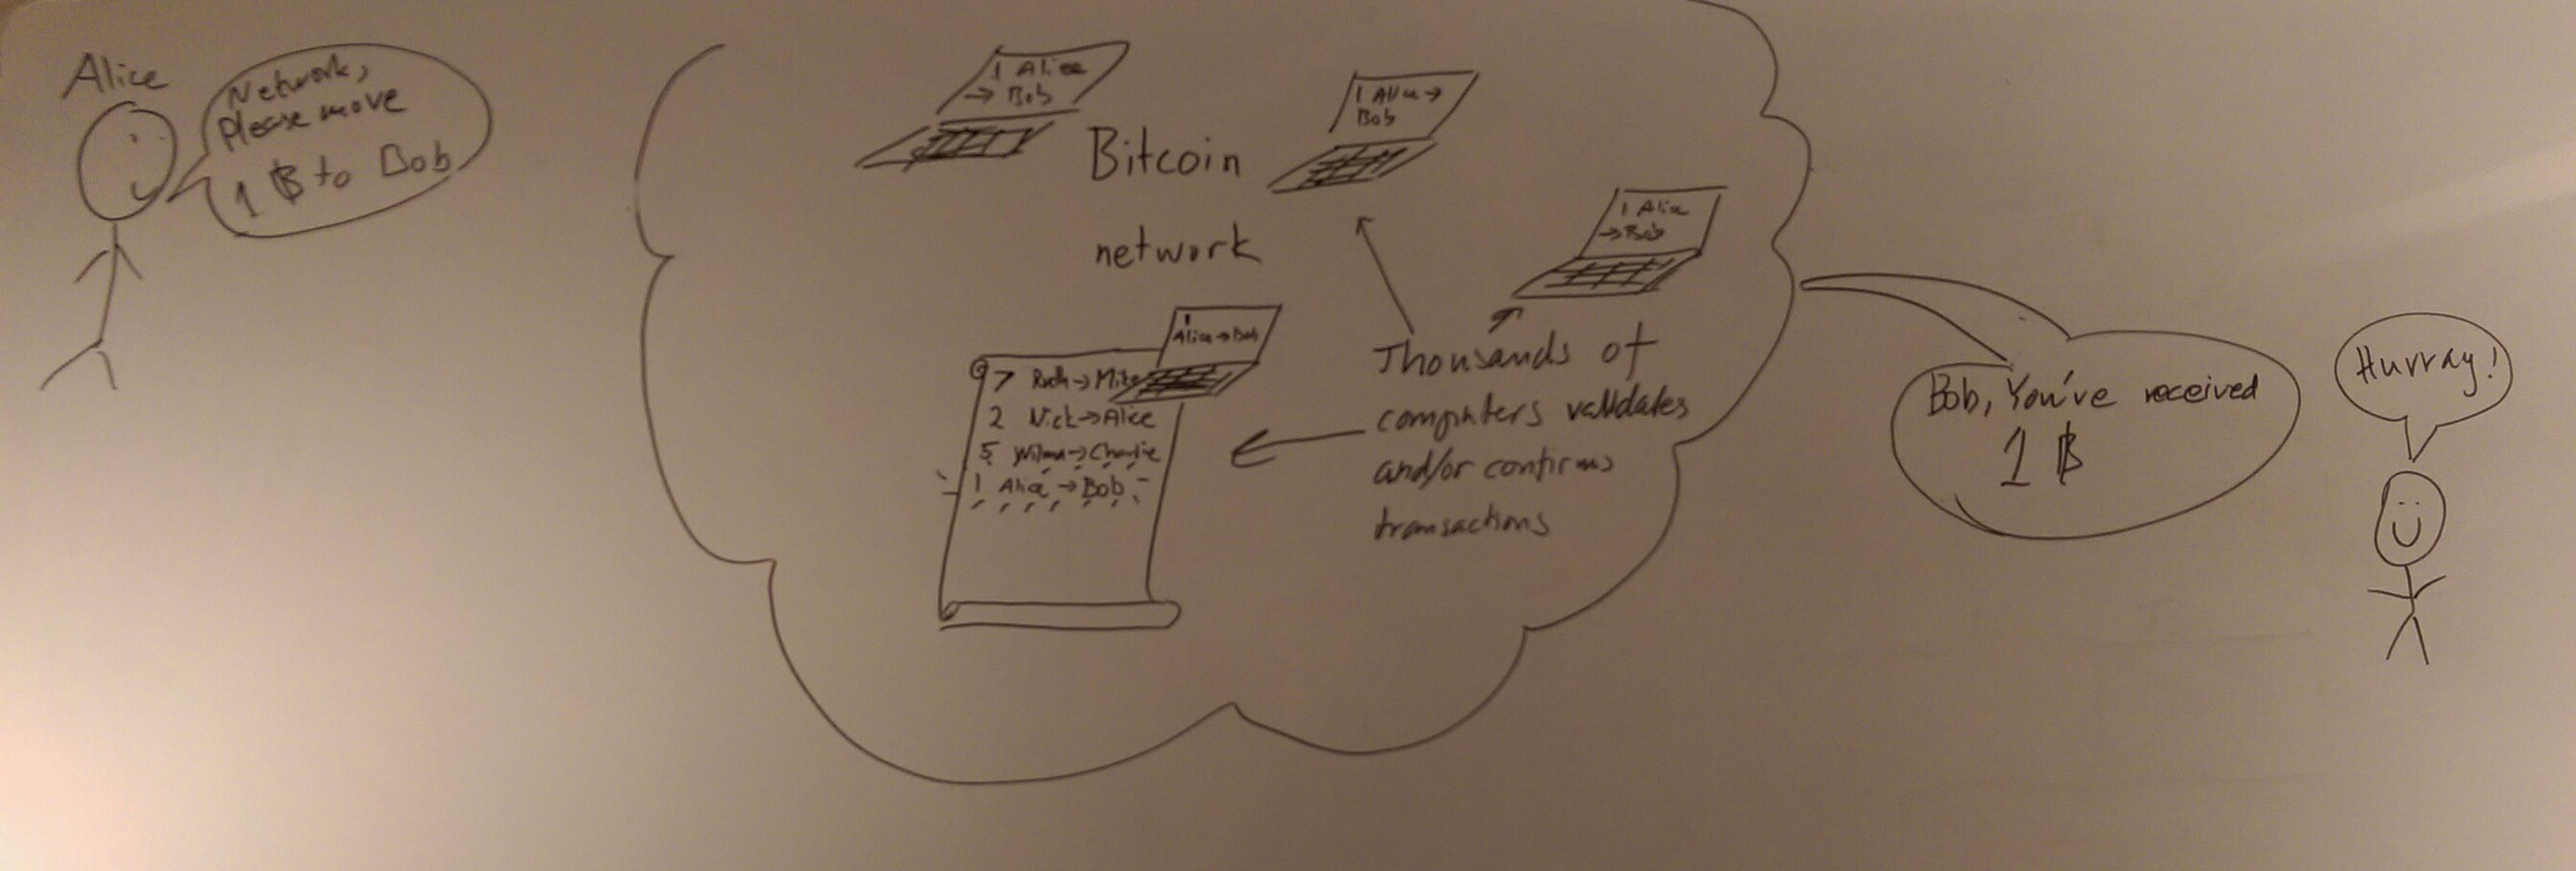 Alice
Network,
Please move
1 ₿ to Bob
1 Alice
→ Bob
Bitcoin
network
1 Alice →
Bob
1 Alice
→ Bob
1
Alice → Bob
7 Ruth → Mike
2 Nick → Alice
5 Wilma → Charlie
1 Alice → Bob
Thousands of
computers validates
and/or confirms
transactions
Bob, You've received
1 ₿
Hurray!